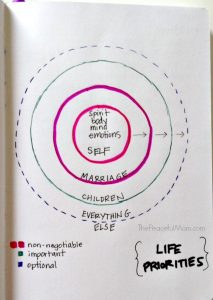 spirit
body
mind
emotions
SELF
MARRIAGE
CHILDREN
EVERYTHING
ELSE
ThePeacefulMom.com
non-negotiable
important
optional
{LIFE
PRIORITIES}